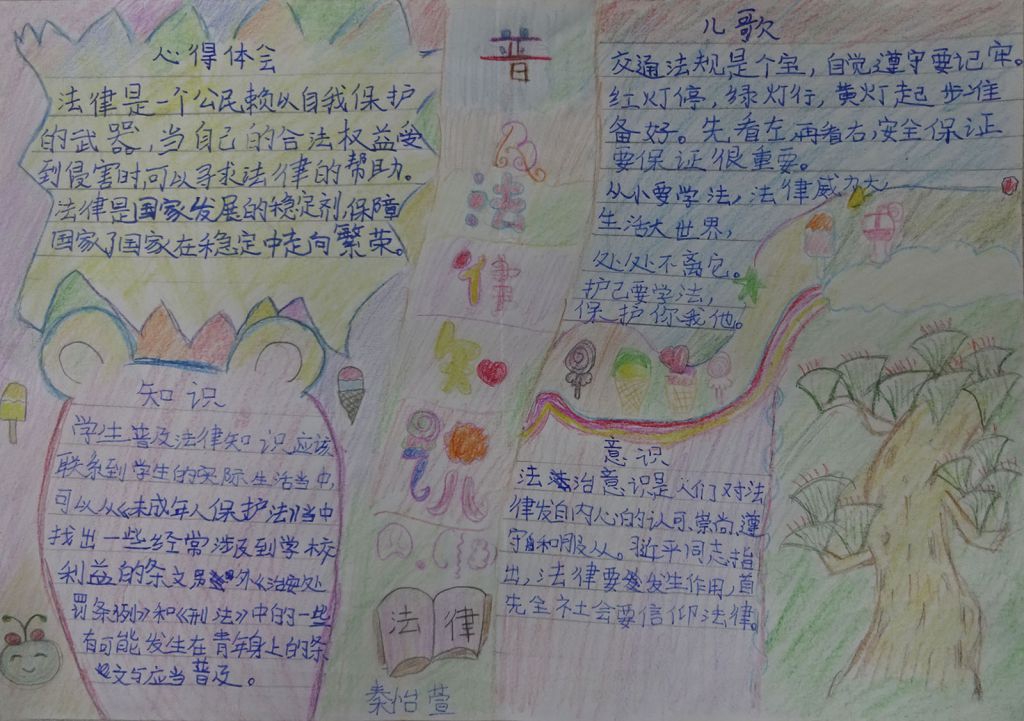 心得体会
法律是一个公民赖以自我保护
的武器,当自己的合法权益受
到侵害时,可以寻求法律的帮助。
法律是国家发展的稳定剂,保障
国家了国家在稳定中走向繁荣。
知识
学生普及法律知识应该
联系到学生的实际生活当中,
可以从《未成年人保护法》当中
找出一些经常涉及到学校
利益的条文另外《治安处
罚条例》和《刑法》中的一些
有可能发生在青年身上的条
文与应当普及。
普
及
法
律
知
识
法律
秦怡萱
儿歌
交通法规是个宝,自觉遵守要记牢。
红灯停,绿灯行,黄灯起步准
备好。先看左,再看右,安全保证
要保证很重要。
从小要学法,法律威力大,
生活大世界,
处处不离它。
护己要学法,
保护你我他。
意识
法治意识是人们对法
律发自内心的认可、崇尚、遵
守和服从。习近平同志指
出,法律要发生作用,首
先全社会要信仰法律。